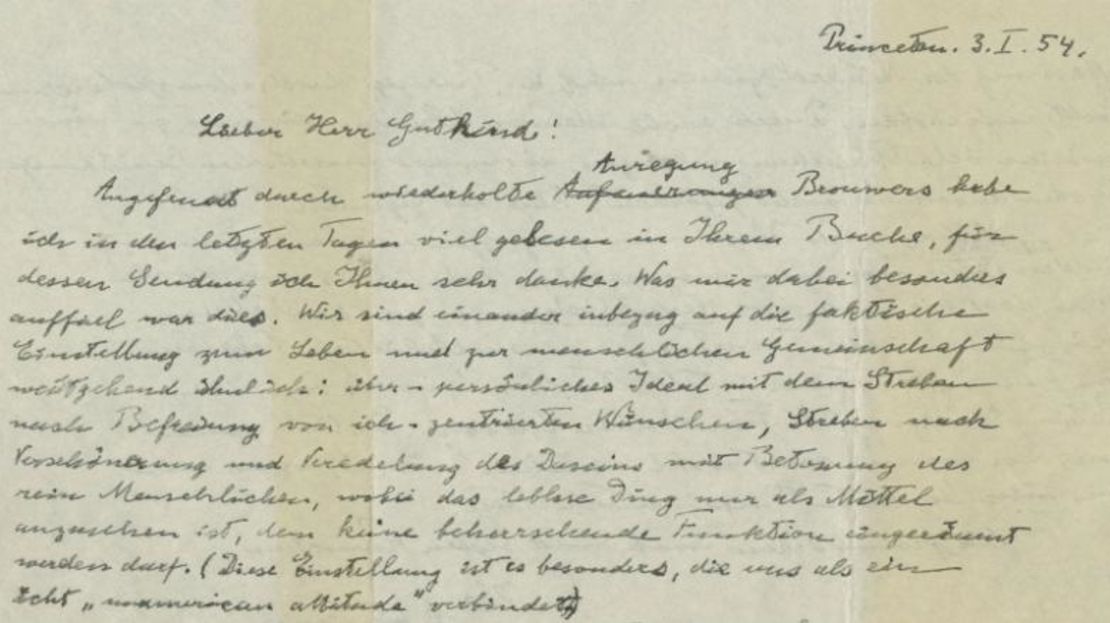 Princeton. 3. I. 54.
Lieber Herr Gutkind!
Anregung
Angefeuert durch wiederholte Aufmunterungen Brouwers habe
ich in den letzten Tagen viel gelesen in Ihrem Buche, für
dessen Sendung ich Ihnen sehr danke. Was mir dabei besonders
auffiel war dies. Wir sind einander inbezug auf die faktische
Einstellung zum Leben und zur menschlichen Gemeinschaft
weitgehend ähnlich: über-persönliches Ideal mit dem Streben
nach Befreiung von ich-zentrierten Wünschen, Streben nach
Verschönerung und Veredelung des Daseins mit Betonung des
rein Menschlichen, wobei das leblose Ding nur als Mittel
anzusehen ist, dem keine beherrschende Funktion eingeräumt
werden darf. (Diese Einstellung ist es besonders, die uns als ein
echt „unamerican attitude" verbindet)